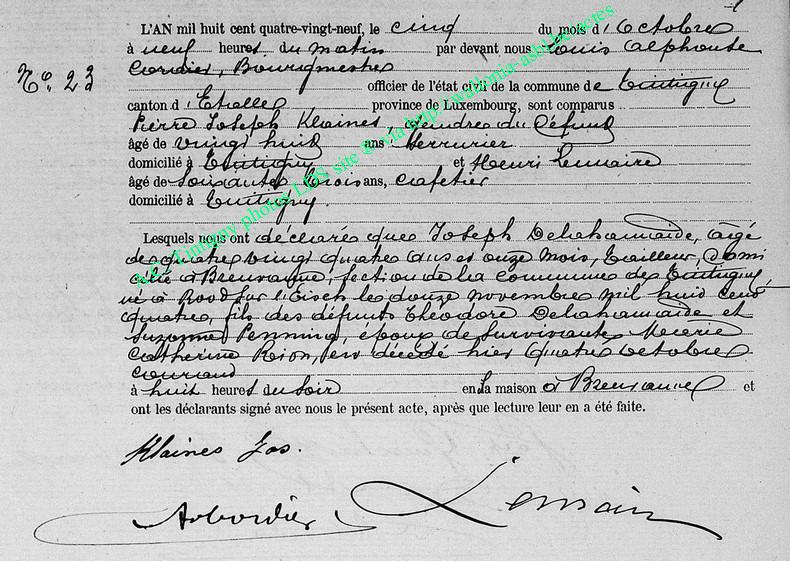 L'AN mil huit cent quatre-vingt-neuf, le cinq du mois d'Octobre
à neuf heures du matin par devant nous Louis Alphonse
Cordier, Bourgmestre
No. 23
officier de l'état civil de la commune de Tintigny
canton d'Etalle province de Luxembourg, sont comparus
Pierre Joseph Klaines, gendre du défunt
âgé de vingt huit ans Serrurier
domicilié à Tintigny et Henri Lemaire
âgé de Soixante trois ans, cafetier
domicilié à Tintigny.
Lesquels nous ont déclaré que Joseph Delahamaide, âgé
de quatre vingt quatre ans et onze mois, tailleur, domi
cilié à Breuvanne, section de la commune de Tintigny
né à Rood sur l'Eisch le douze novembre mil huit cent
quatre, fils des défunts Théodore Delahamaide et
Suzanne Penning, époux de survivante Marie
Catherine Rion, est décédé hier quatre octobre
courant
à huit heures du soir en sa maison à Breuvanne et
ont les déclarants signé avec nous le présent acte, après que lecture leur en a été faite.
Klaines Jos.
Cordier Lemair
Tintigny photos LDS site via http://wallonia-asbl.be/actes